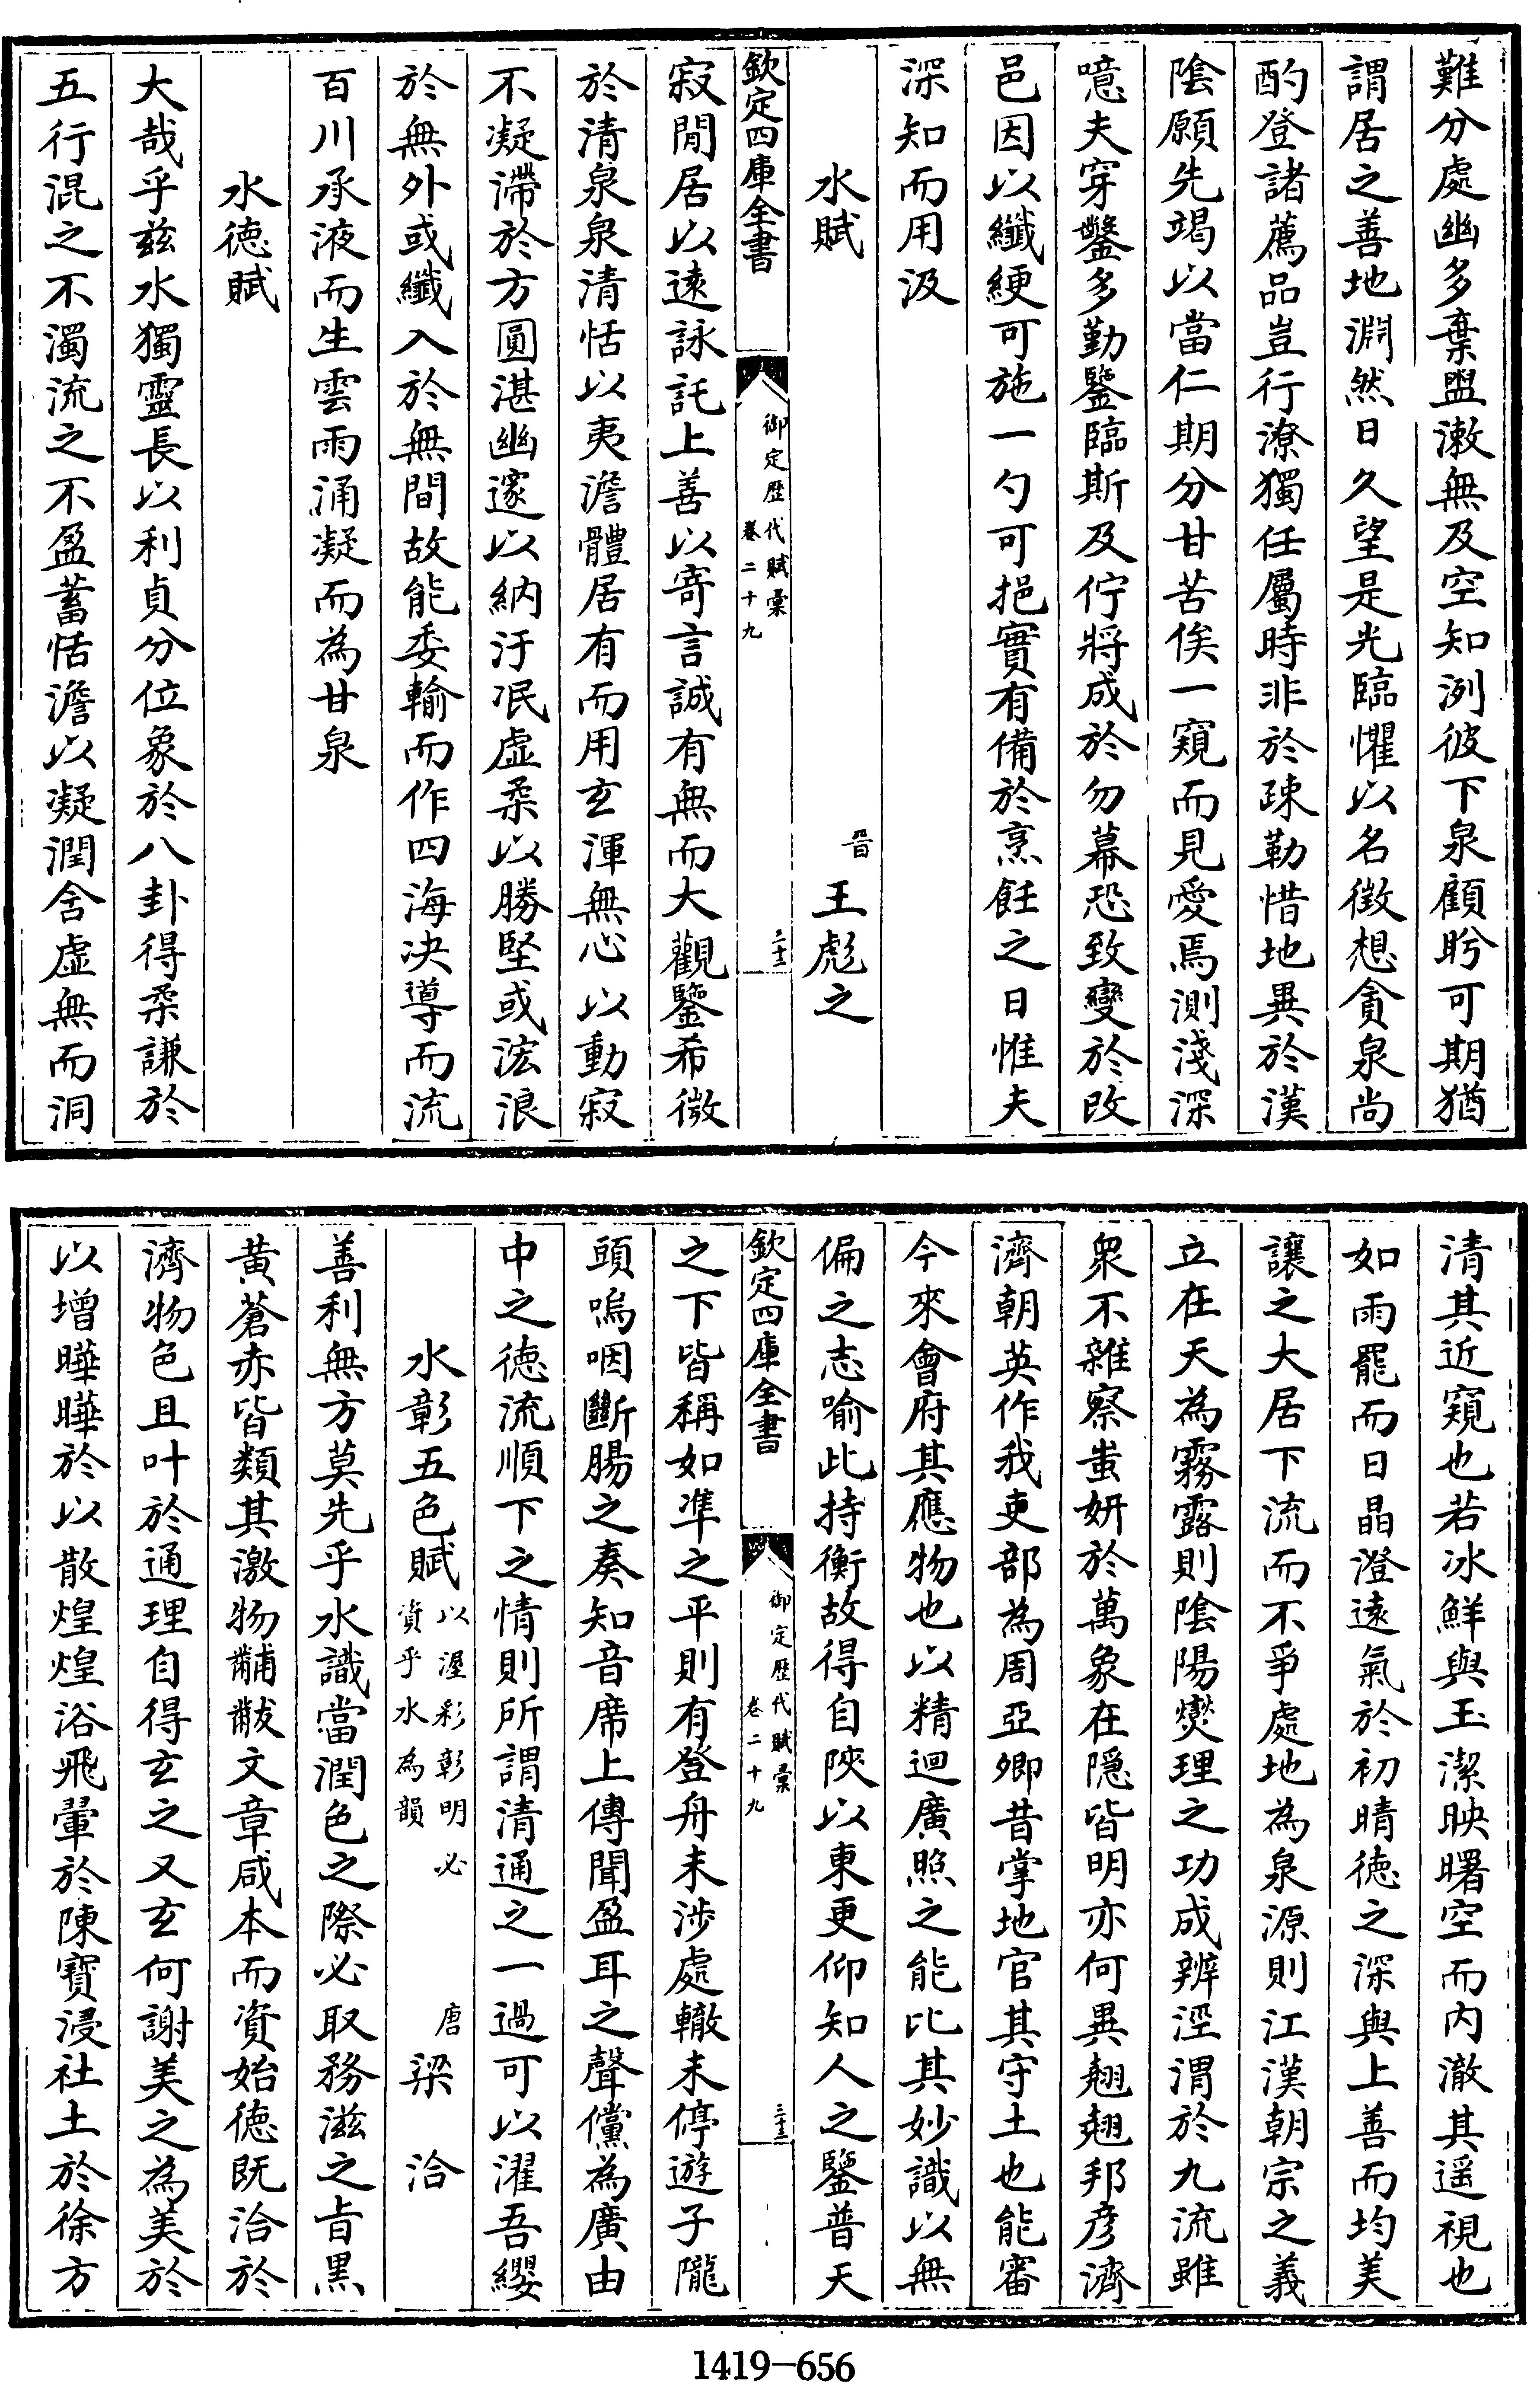 難分處幽多棄盥漱無及空知洌彼下泉顧眄可期猶
謂居之善地淵然日久望是光臨懼以名徴想貪泉尚
酌登諸薦品豈行潦獨任屬時非於疎勒惜地異於漢
陰願先竭以當仁期分甘苦俟一窺而見愛焉測淺深
噫夫穿鑿多勤鑒臨斯及佇將成於勿幕恐致變於改
邑因以纖綆可施一勺可挹實有備於烹飪之日惟夫
深知而用汲
水賦 晉 王彪之
欽定四庫全書 御定歷代賦彙 卷二十九 三十二
寂閒居以遠詠託上善以寄言誠有無而大觀鑒希微
於清泉泉清恬以夷澹體居有而用玄渾無心以動寂
不凝滯於方圓湛幽邃以納汙泯虛柔以勝堅或浤浪
於無外或纖入於無間故能委輸而作四海決導而流
百川承液而生雲雨涌凝而為甘泉
水徳賦
大哉乎兹水獨靈長以利貞分位象於八卦得柔謙於
五行混之不濁流之不盈蓄恬澹以凝潤含虛無而洞
清其近窺也若冰鮮與玉潔映曙空而内澈其遥視也
如雨罷而日晶澄遠氣於初晴徳之深與上善而均美
讓之大居下流而不爭處地為泉源則江漢朝宗之義
立在天為霧露則陰陽爕理之功成辨涇渭於九流雖
衆不雜察蚩妍於萬象在隱皆明亦何異翹翹邦彥濟
濟朝英作我吏部為周亞卿昔掌地官其守土也能審
今來會府其應物也以精迴廣照之能比其妙識以無
偏之志喻此持衡故得自陜以東更仰知人之鑒普天
欽定四庫全書 御定歷代賦彙 卷二十九 三十三
之下皆稱如準之平則有登舟未涉處轍未停遊子隴
頭嗚咽斷腸之奏知音席上傳聞盈耳之聲儻為廣由
中之徳流順下之情則所謂清通之一過可以濯吾纓
水彰五色賦 以渥彩彰明必資乎水為韻 唐 梁洽
善利無方莫先乎水識當潤色之際必取務滋之旨黑
黄蒼赤皆類其激物黼黻文章咸本而資始徳既洽於
濟物色且叶於通理自得玄之又玄何謝美之為美於
以增曄曄於以散煌煌浴飛翬於陳寶浸社土於徐方
1419-656